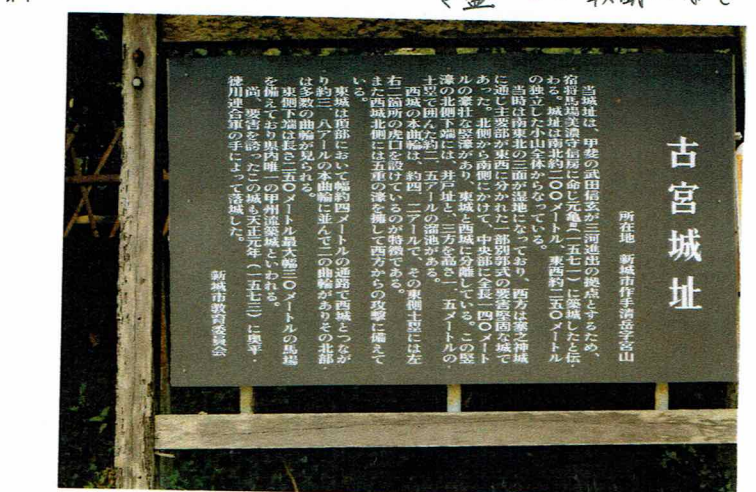 古宮城址
所在地 新城市作手清岳字宮山
当城址は、甲斐の武田信玄が三河進出の拠点とするため、
宿将馬場美濃守信房に命じ元亀二(一五七一)に築城したと伝
わる。城址は南北約二〇〇メートル、東西約二五〇メートル
の独立した小山全体からなっている。
当時は南東北の三面が湿地になっており、西方は塞之神城
に通じ主要部が東西に分かれた一部別郭式の要害堅固な城で
あった。北側から南側にかけて、中央部に全長一四〇メート
ルの豪壮な竪濠があり、東城と西城に分離している。この竪
濠の北側下端には、井戸址と、三方を高さ一、五メートルの
土塁で囲んだ約二、五アールの溜池がある。
西城の本曲輪は、約四、二アールで、その東側土塁には左
右二箇所の虎口を設けているのが特徴である。
また西城北側には五重の濠を擁して西方からの攻撃に備えて
いる。
東城は頂部において幅約四メートルの通路で西城とつなが
り約三、八アールの本曲輪に並んで二の曲輪がありその北部
は多数の曲輪が見られる。
東側下端は長さ二五〇メートル最大幅三〇メートルの馬場
を備えており県内唯一の甲州流築城といわれる。
尚、要害を誇ったこの城も天正元年(一五七三)に奥平・
徳川連合軍の手によって落城した。
新城市教育委員会